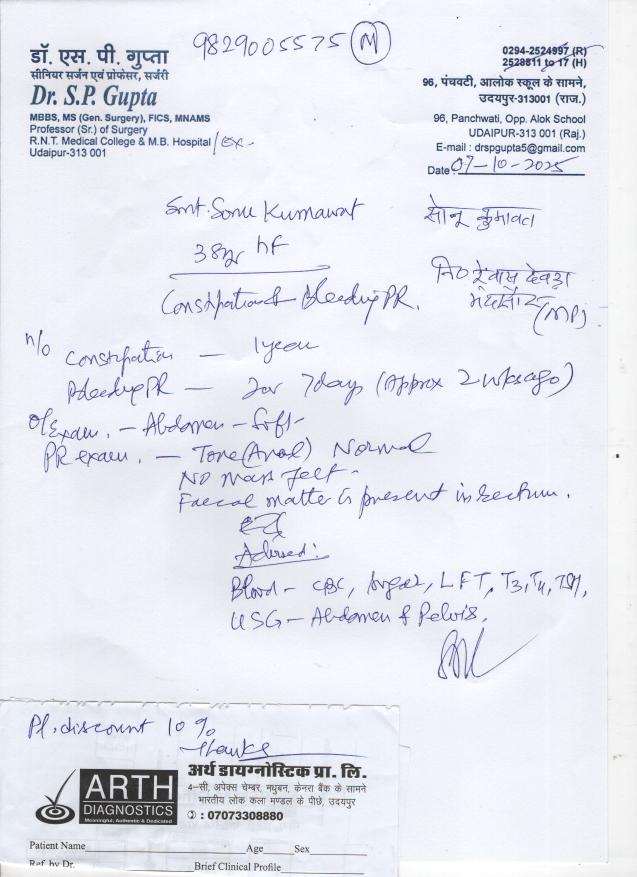 9829005575 (M)
डॉ. एस. पी. गुप्ता
सीनियर सर्जन एवं प्रोफेसर, सर्जरी
Dr. S.P. Gupta
MBBS, MS (Gen. Surgery), FICS, MNAMS
Professor (Sr.) of Surgery
R.N.T. Medical College & M.B. Hospital / Ex-
Udaipur-313 001
0294-2524997 (R)
2528811 to 17 (H)
96, पंचवटी, आलोक स्कूल के सामने,
उदयपुर-313001 (राज.)
96, Panchwati, Opp. Alok School
UDAIPUR-313 001 (Raj.)
E-mail : drspgupta5@gmail.com
Date: 07-10-2025
Smt. Sonu Kumawat
सोनू कुमावत
38yr hF
नि० देवड़ा
(MP)
Constipation & Bleeding PR.
h/o Constipation — 1 year
Bleeding PR — for 7 days (Approx 2 wks ago)
O/Exam. — Abdomen — Soft
PR exam. — Tone (Anal) Normal
NO Mass felt -
Faecal matter is present in rectum.
Advised:
Blood — CBC, Sugar, LFT, T3, T4, TSH,
USG — Abdomen & Pelvis.
Pl. discount 10%
Thanks
ARTH
DIAGNOSTICS
Meaningful, Authentic & Dedicated
अर्थ डायग्नोस्टिक प्रा. लि.
4-सी, अपेक्स चेम्बर, मधुबन, केनरा बैंक के सामने
भारतीय लोक कला मण्डल के पीछे, उदयपुर
: 07073308880
Patient Name Age Sex
Ref. by Dr. Brief Clinical Profile